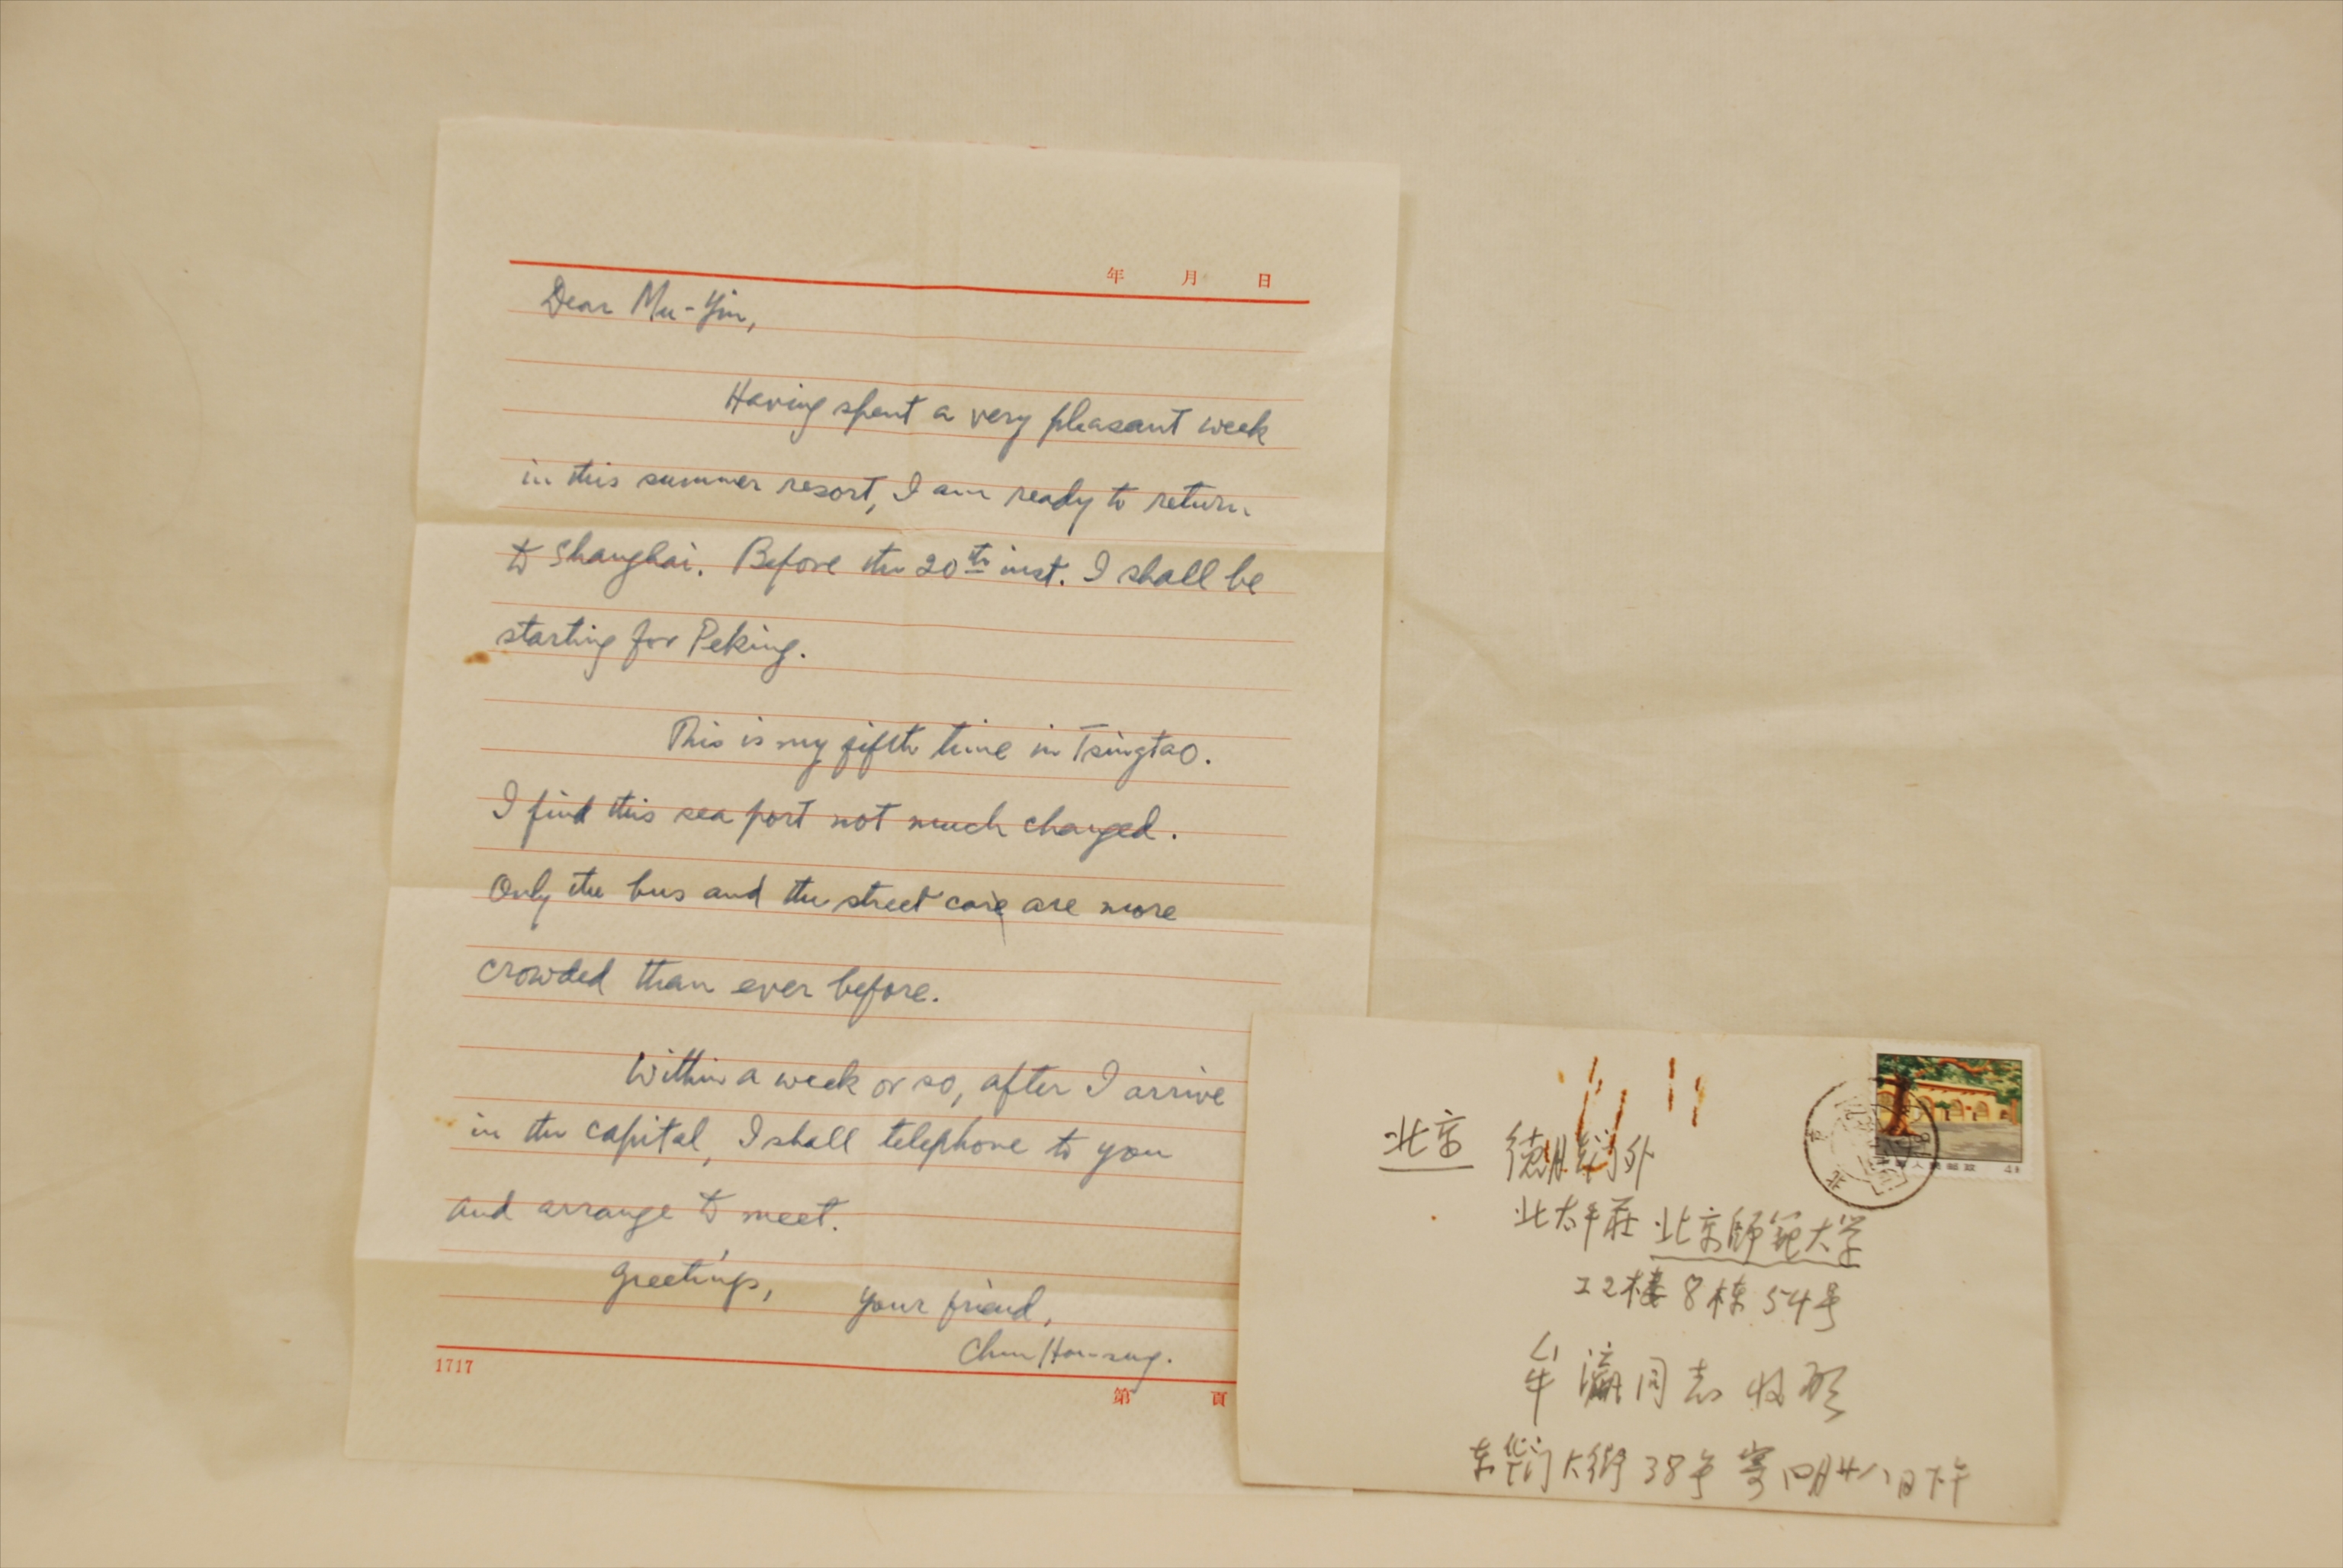 年 月 日
Dear Mu-Yin,
Having spent a very pleasant week
in this summer resort, I am ready to return
to Shanghai. Before the 20th inst. I shall be
starting for Peking.
This is my fifth time in Tsingtao.
I find this sea port not much changed.
Only the bus and the street car are more
crowded than ever before.
Within a week or so, after I arrive
in the capital, I shall telephone to you
and arrange to meet.
Greetings, your friend,
1717
第 頁
北京 德胜门外
北太平庄 北京師范大学
22楼 8栋 54号
牟瀛同志收
东华门大街38号寄 四月廿八日下午